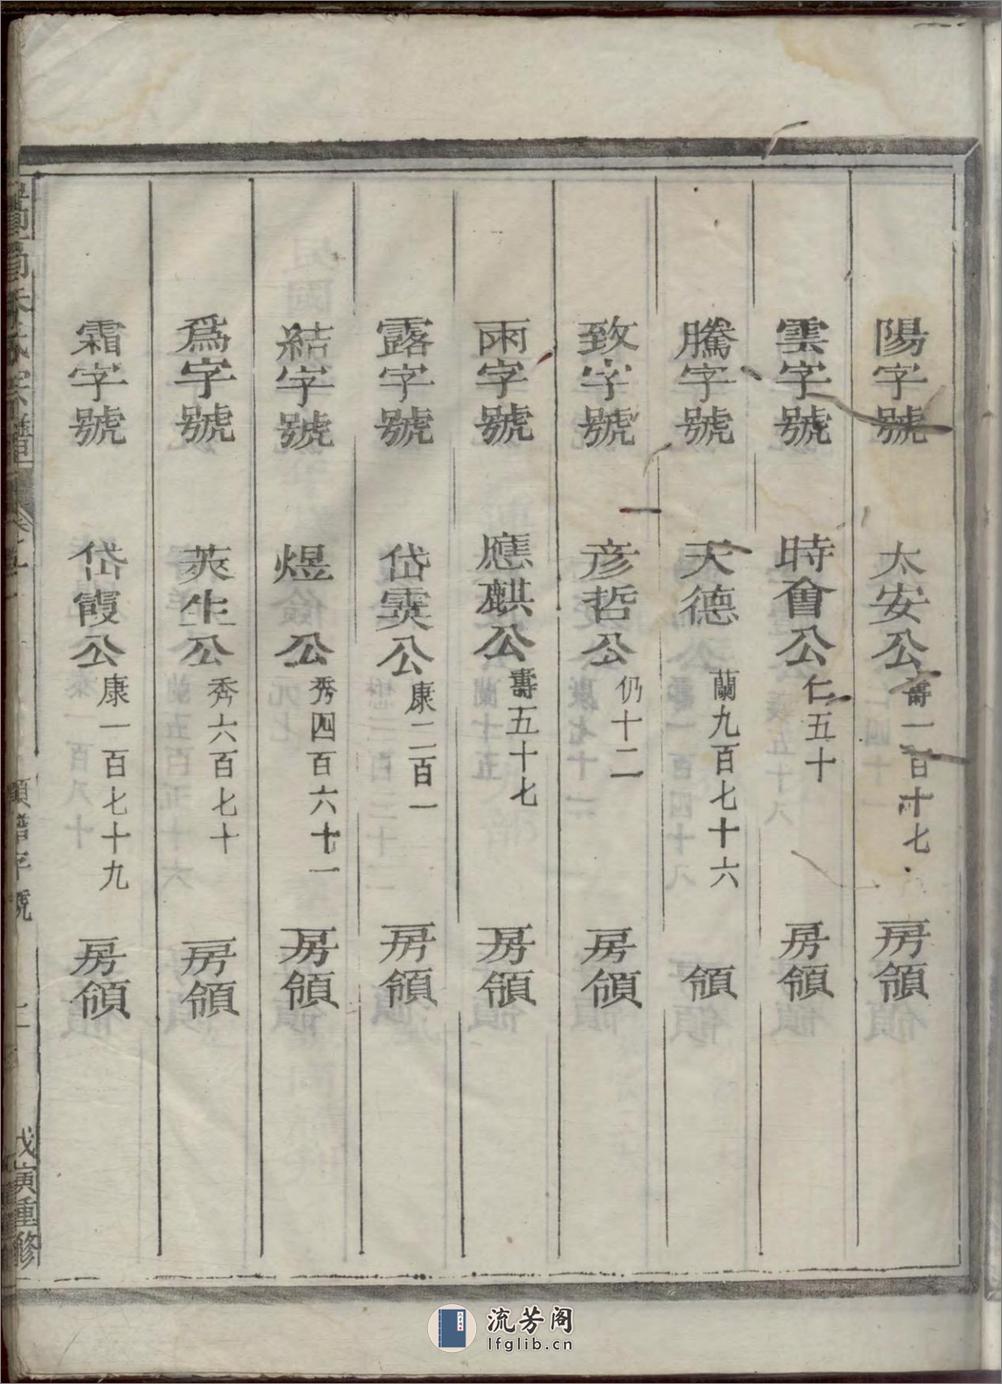 陽字號 太安公 壽一百十七 房領
雲字號 時會公 仁五十 房領
騰字號 天德 蘭九百七十六 領
致字號 彦哲公 仍十二 房領
雨字號 應麒公 壽五十七 房領
露字號 岱霙公 康二百一 房領
結字號 煜公 秀四百六十一 房領
爲字號 荚生公 秀六百七十 房領
霜字號 岱霞公 康一百七十九 房領
氏宗譜 卷之 領譜字號 戊寅重修
流芳阁
lfglib.cn